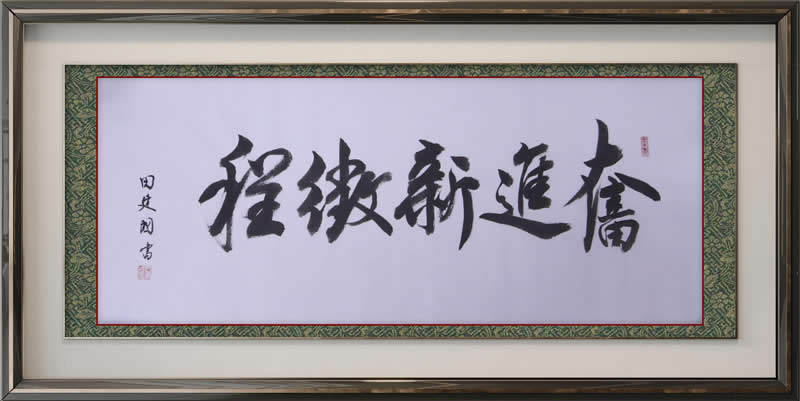 奮進新徵程
田建國書